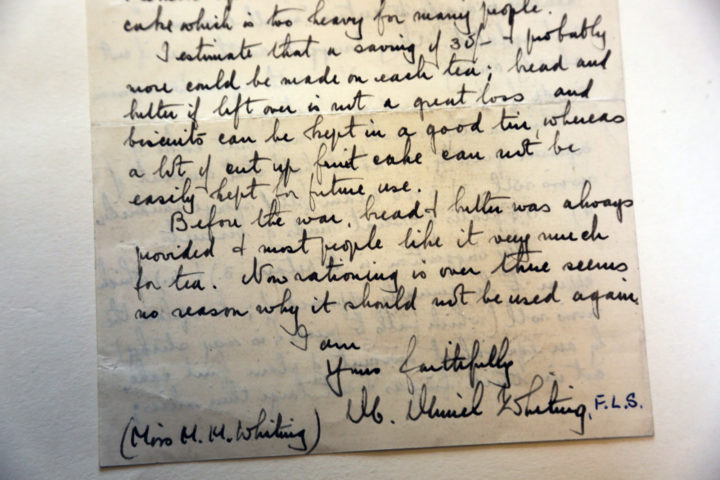 cake which is too heavy for many people.
I estimate that a saving of 30/- & probably
more could be made on each tea; bread and
butter if left over is not a great loss and
biscuits can be kept in a good tin, whereas
a lot of cut up fruit cake can not be
easily kept for future use.
Before the war, bread & butter was always
provided & most people like it very much
for tea. Now rationing is over there seems
no reason why it should not be used again.
I am
Yours faithfully
M. Muriel Whiting, F.L.S.
(Miss M. M. Whiting)